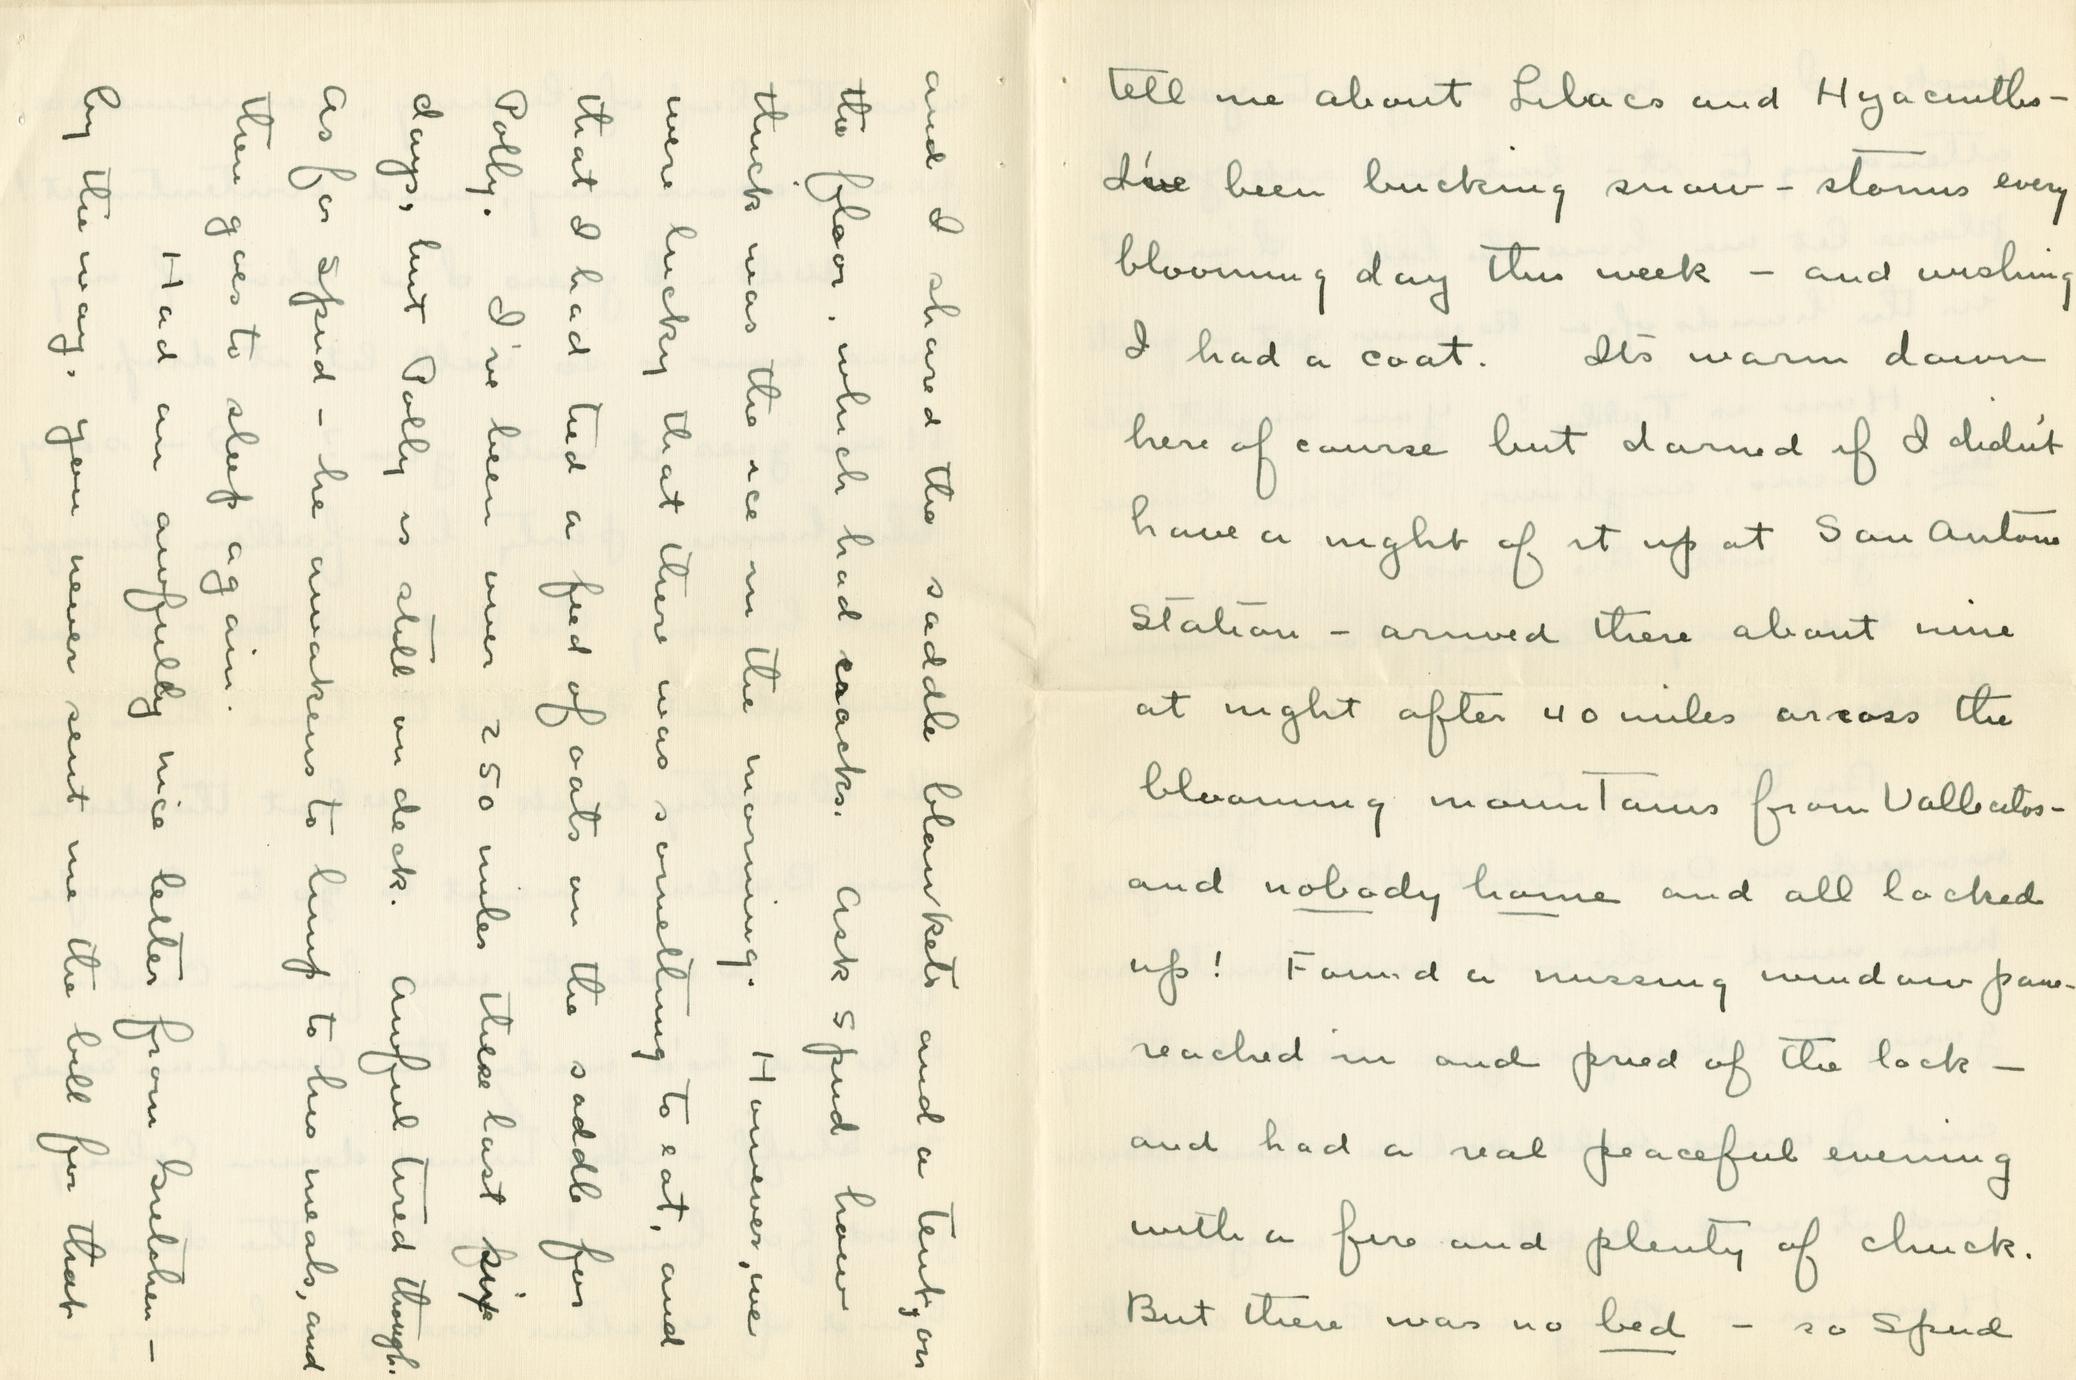 tell me about Lilacs and Hyacinths-
I've been bucking snow-storms every
blooming day this week - and wishing
I had a coat. Its warm down
here of course but darned if I didn't
have a night of it up at San Antone
Station - arrived there about nine
at night after 40 miles across the
blooming mountains from Vallecitos-
and nobody home and all locked
up! Found a missing window pane-
reached in and pried of the lock -
and had a real peaceful evening
with a fire and plenty of chuck.
But there was no bed - so Spud
and I shared the saddle blankets and a tent, on
the floor, which had cracks. Ask Spud how
thick was the ice in the morning. However, we
were lucky that there was something to eat, and
that I had tied a feed of oats on the saddle for
Polly. I've been over 250 miles these last six
days, but Polly is still on deck. Awful tired though.
As for Spud - he awakens to lump to his meals, and
then goes to sleep again.
Had an awfully nice letter from Gretchen -
by the way, you never sent me the bill for that